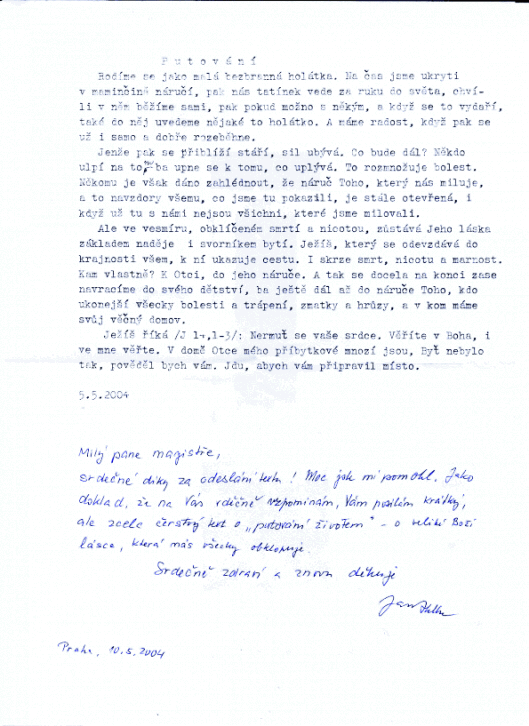 P u t o v á n í
Rodíme se jako malá bezbranná holátka. Na čas jsme ukryti
v maminčině náručí, pak nás tatínek vede za ruku do světa, chví-
li v něm běžíme sami, pak pokud možno s někým, a když se to vydaří,
také do něj uvedeme nějaké to holátko. A máme radost, když pak se
už i samo a dobře rozeběhne.
Jenže pak se přiblíží stáří, sil ubývá. Co bude dál? Někdo
ulpí na tom, ba upne se k tomu, co uplývá. To rozmnožuje bolest.
Někomu je však dáno zahlédnout, že náruč Toho, který nás miluje,
a to navzdory všemu, co jsme tu pokazili, je stále otevřená, i
když už tu s námi nejsou všichni, které jsme milovali.
Ale ve vesmíru, obklíčeném smrtí a nicotou, zůstává Jeho láska
základem naděje i svorníkem bytí. Ježíš, který se odevzdává do
krajnosti všem, k ní ukazuje cestu. I skrze smrt, nicotu a marnost.
Kam vlastně? K Otci, do jeho náruče. A tak se docela na konci zase
navracíme do svého dětství, ba ještě dál až do náruče Toho, kdo
ukonejší všecky bolesti a trápení, zmatky a hrůzy, a v kom máme
svůj věčný domov.
Ježíš říká /J 14,1-3/: Nermuť se vaše srdce. Věříte v Boha, i
ve mne věřte. V domě Otce mého příbytkové mnozí jsou, Byť nebylo
tak, pověděl bych vám. Jdu, abych vám připravil místo.
5.5.2004
Milý pane magistře,
srdečné díky za odeslání textu! Moc jak mi pomohl. Jako
doklad, že na Vás vděčně vzpomínám, Vám posílám krátký,
ale zcela čerstvý text o „putování životem" - o veliké Boží
lásce, která nás všecky obklopuje.
Srdečně zdraví a znovu děkuje
Jan Heller
Praha, 10.5.2004